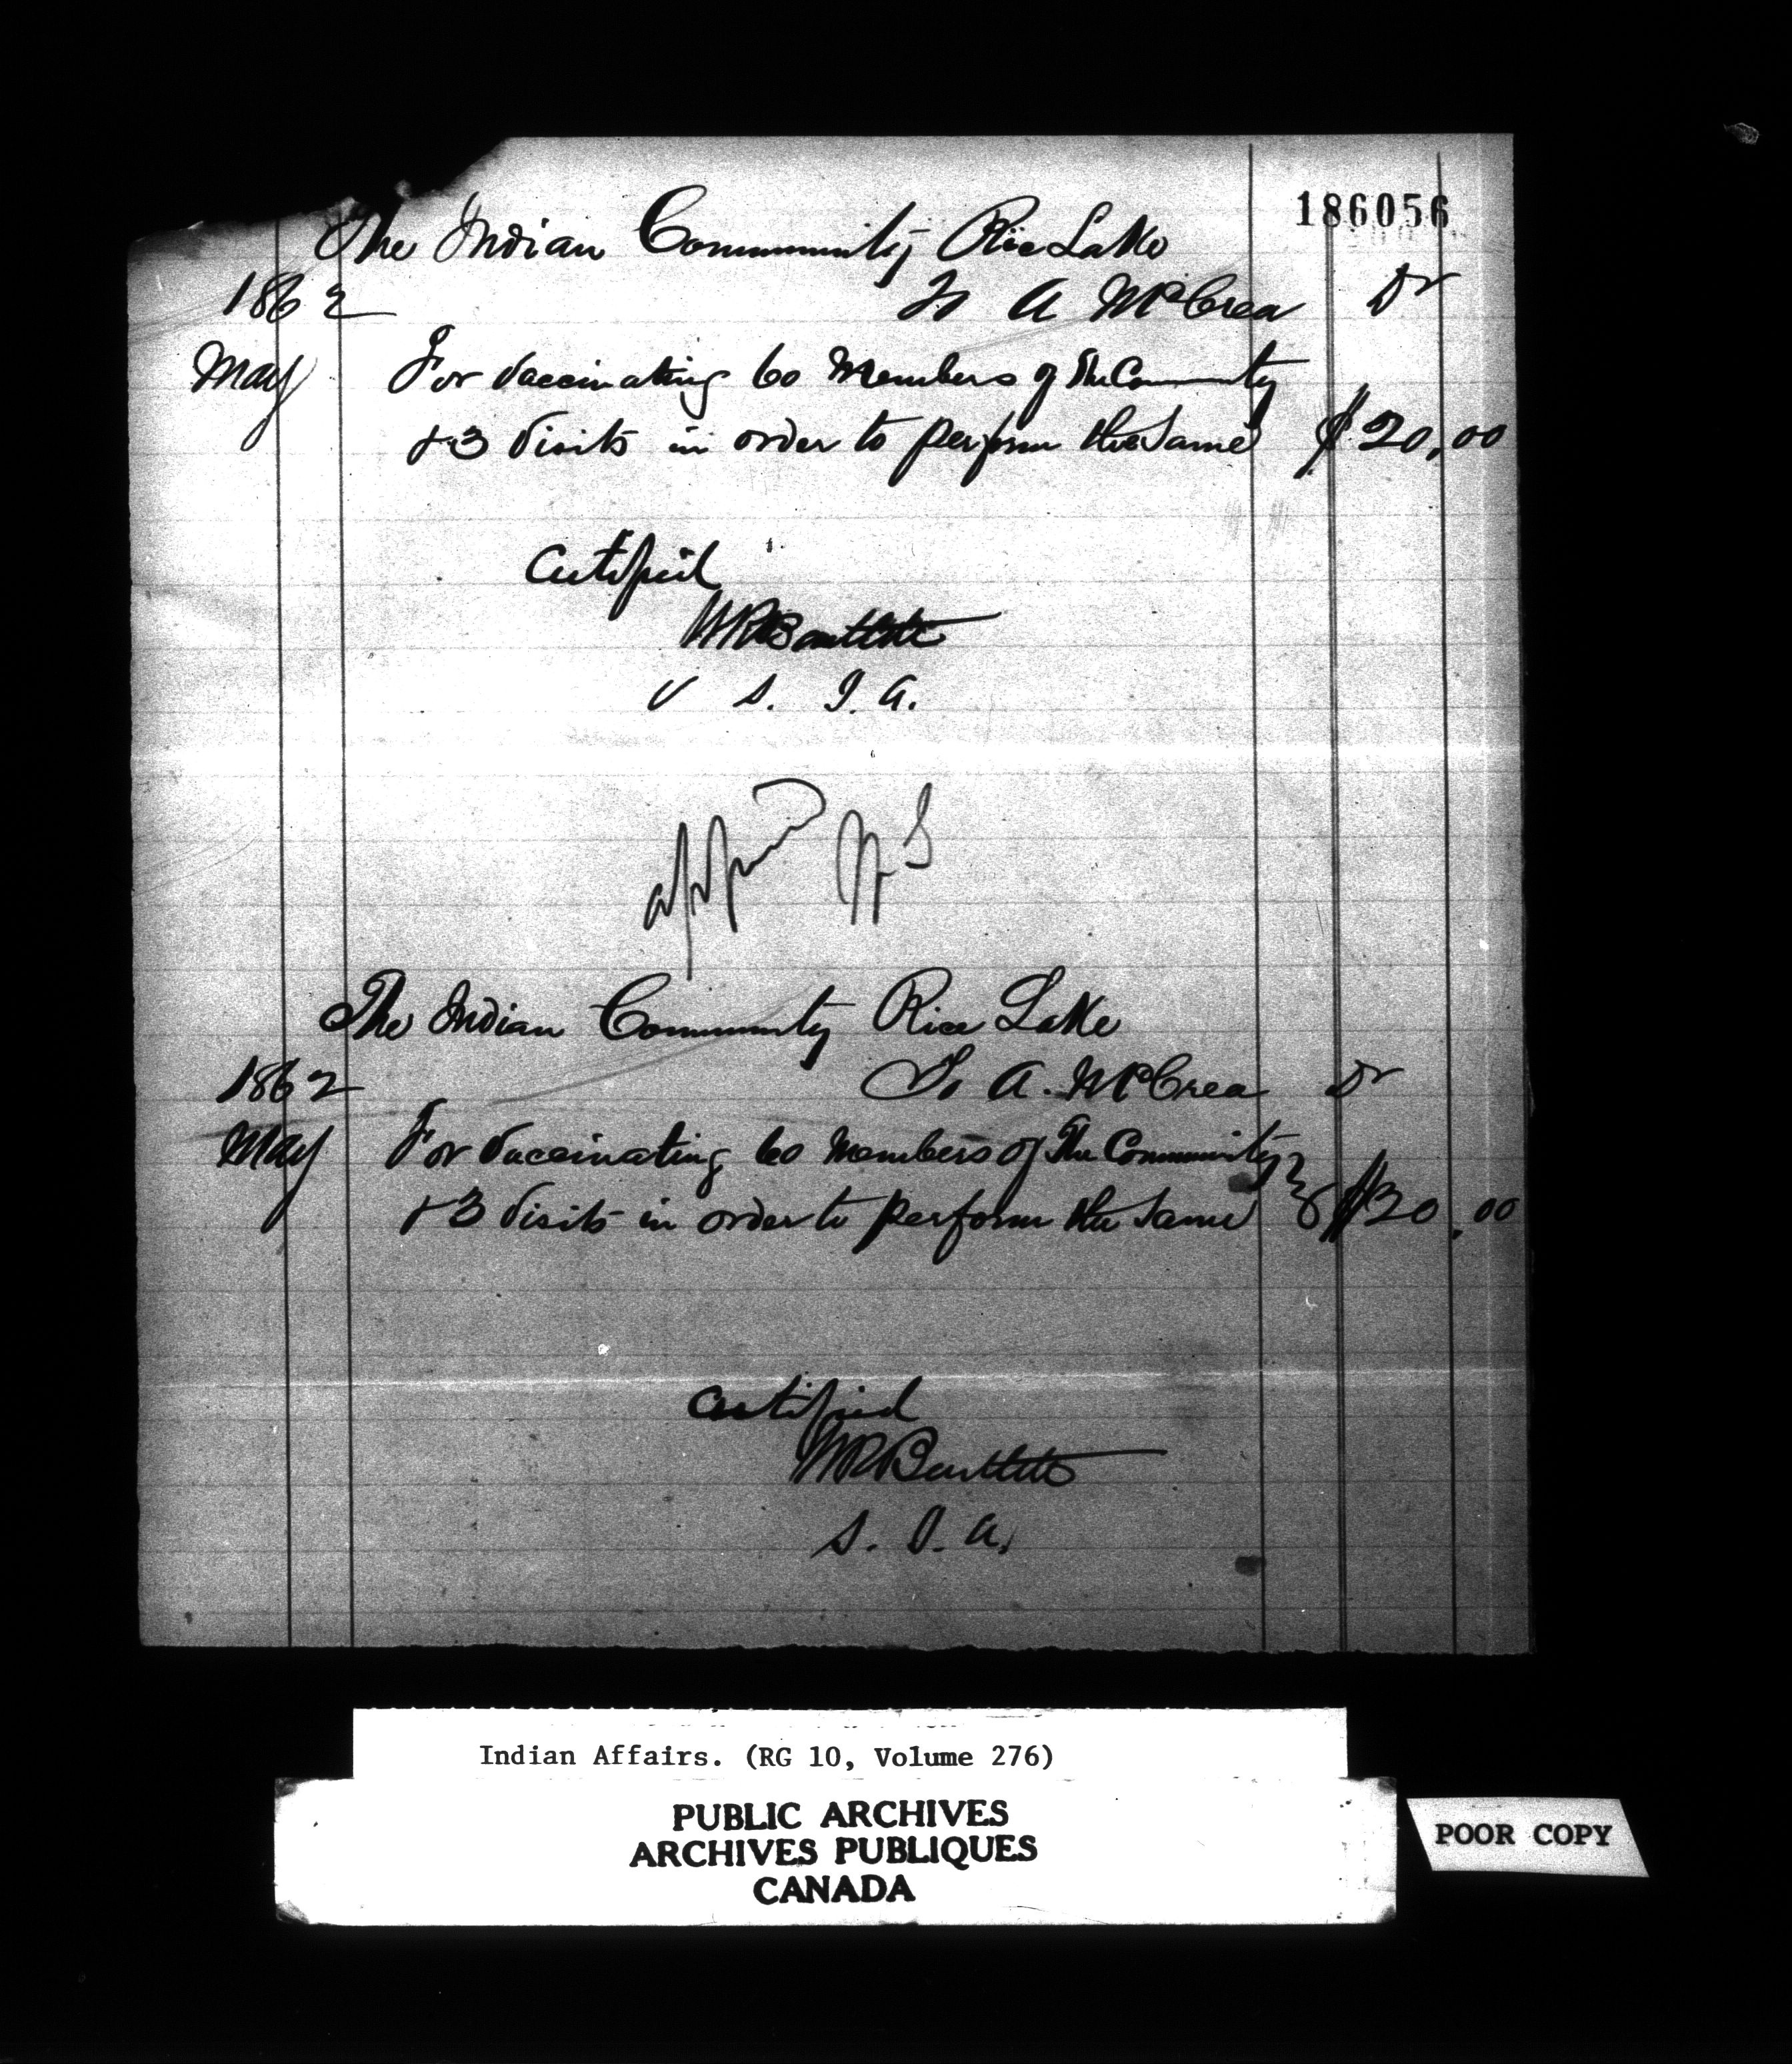 186056
The Indian Community Rice Lake
1862 To A McCrea Dr
May For Vaccinating 60 Members of The Community
& 3 Visits in order to perform the Same $20.00
Certified
WRBartlett
V S. I. A.
approved
The Indian Community Rice Lake
1862 To A. McCrea Dr
May For Vaccinating 60 Members of The Community
& 3 Visits in order to perform the Same $20.00
Certified
WRBartlett
S. I. A.
Indian Affairs. (RG 10, Volume 276)
PUBLIC ARCHIVES
ARCHIVES PUBLIQUES
CANADA
POOR COPY